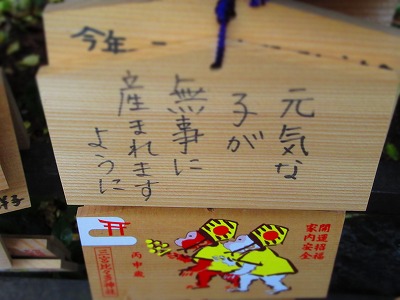 今年
元気な
子が
無事に
産まれます
ように
開運招福
家内安全
丙申歳